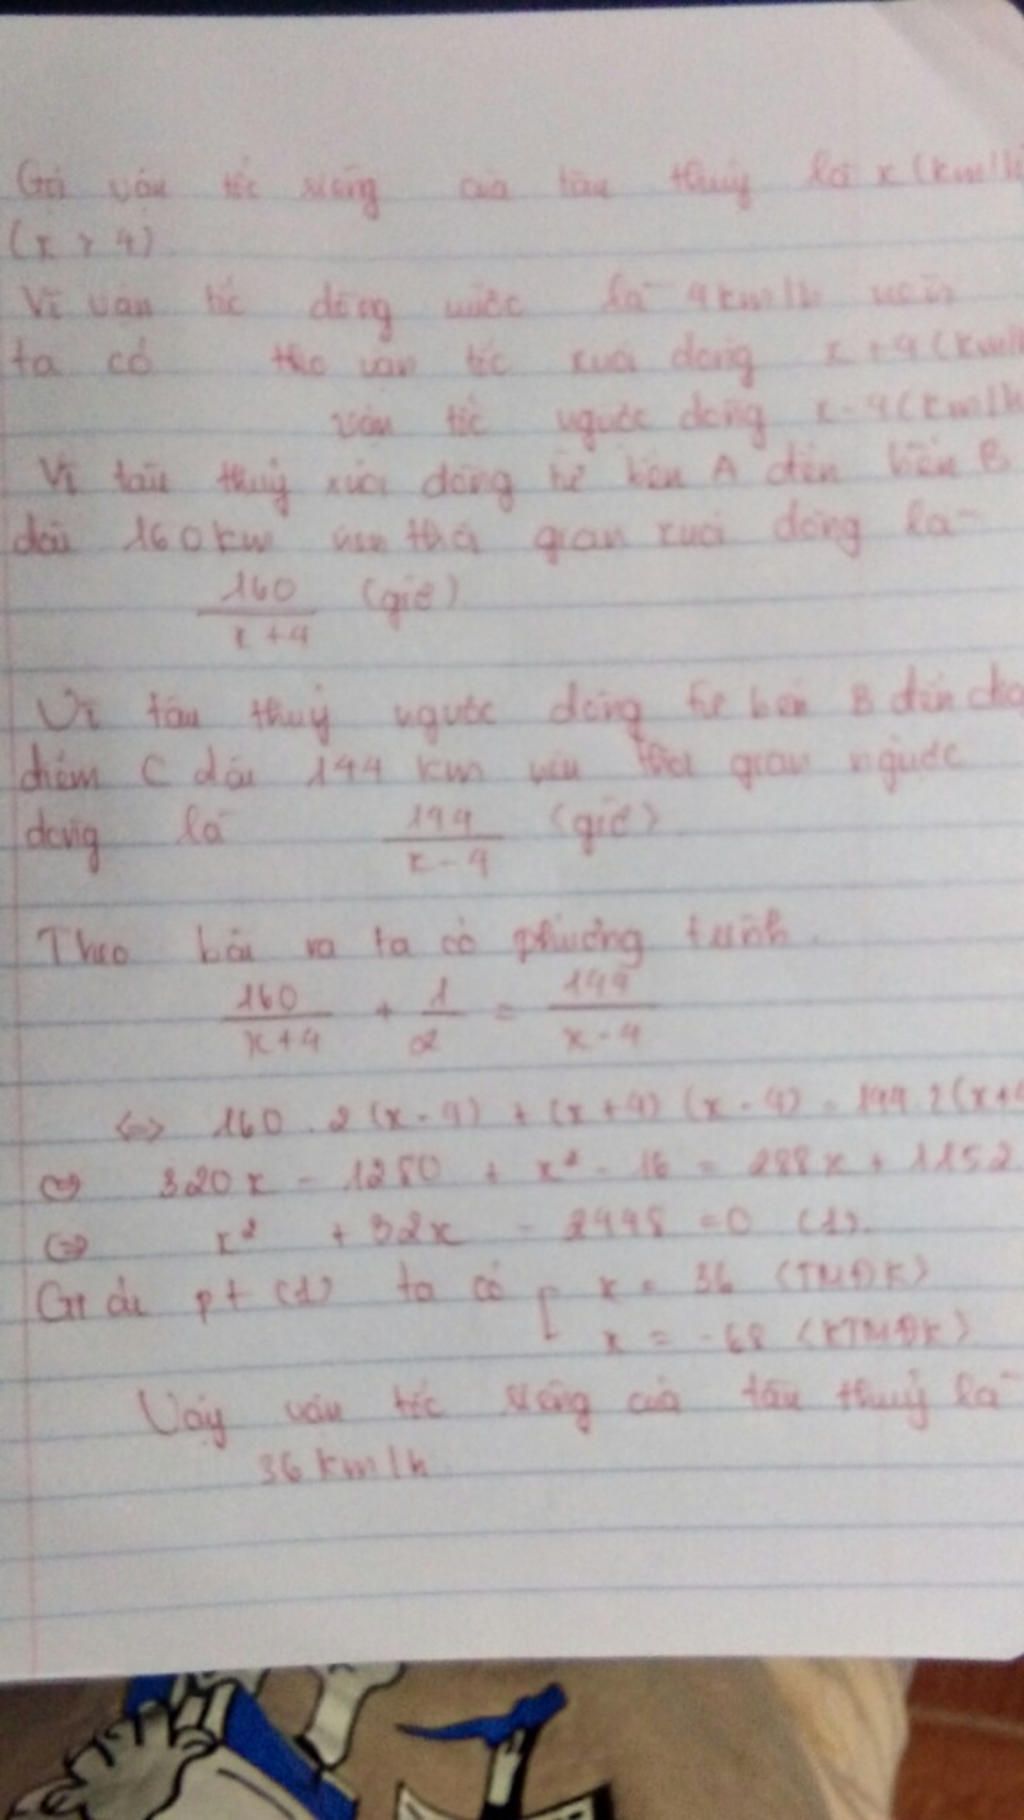 Gọi vận tốc riêng của tàu thuỷ là x (km/h
(x > 4)
Vì vận tốc dòng nước là 4 km/h nên
ta có vận tốc xuôi dòng x + 4 (km/h
vận tốc ngược dòng x - 4 (km/h
Vì tàu thuỷ xuôi dòng từ bến A đến bến B
dài 160 km nên thời gian xuôi dòng là
160 / x + 4 (giờ)
Vì tàu thuỷ ngược dòng từ bến B đến địa
điểm C dài 144 km nên thời gian ngược
dòng là 144 / x - 4 (giờ)
Theo bài ra ta có phương trình
160 / x + 4 + 1 / 2 = 144 / x - 4
<=> 160 . 2 (x - 4) + (x + 4) (x - 4) = 144 . 2 (x + 4
<=> 320x - 1280 + x² - 16 = 288x + 1152
<=> x² + 32x - 2448 = 0 (1).
Giải pt (1) ta có [ x = 36 (TMĐK)
x = -68 (KTMĐK)
Vậy vận tốc riêng của tàu thuỷ là
36 km/h